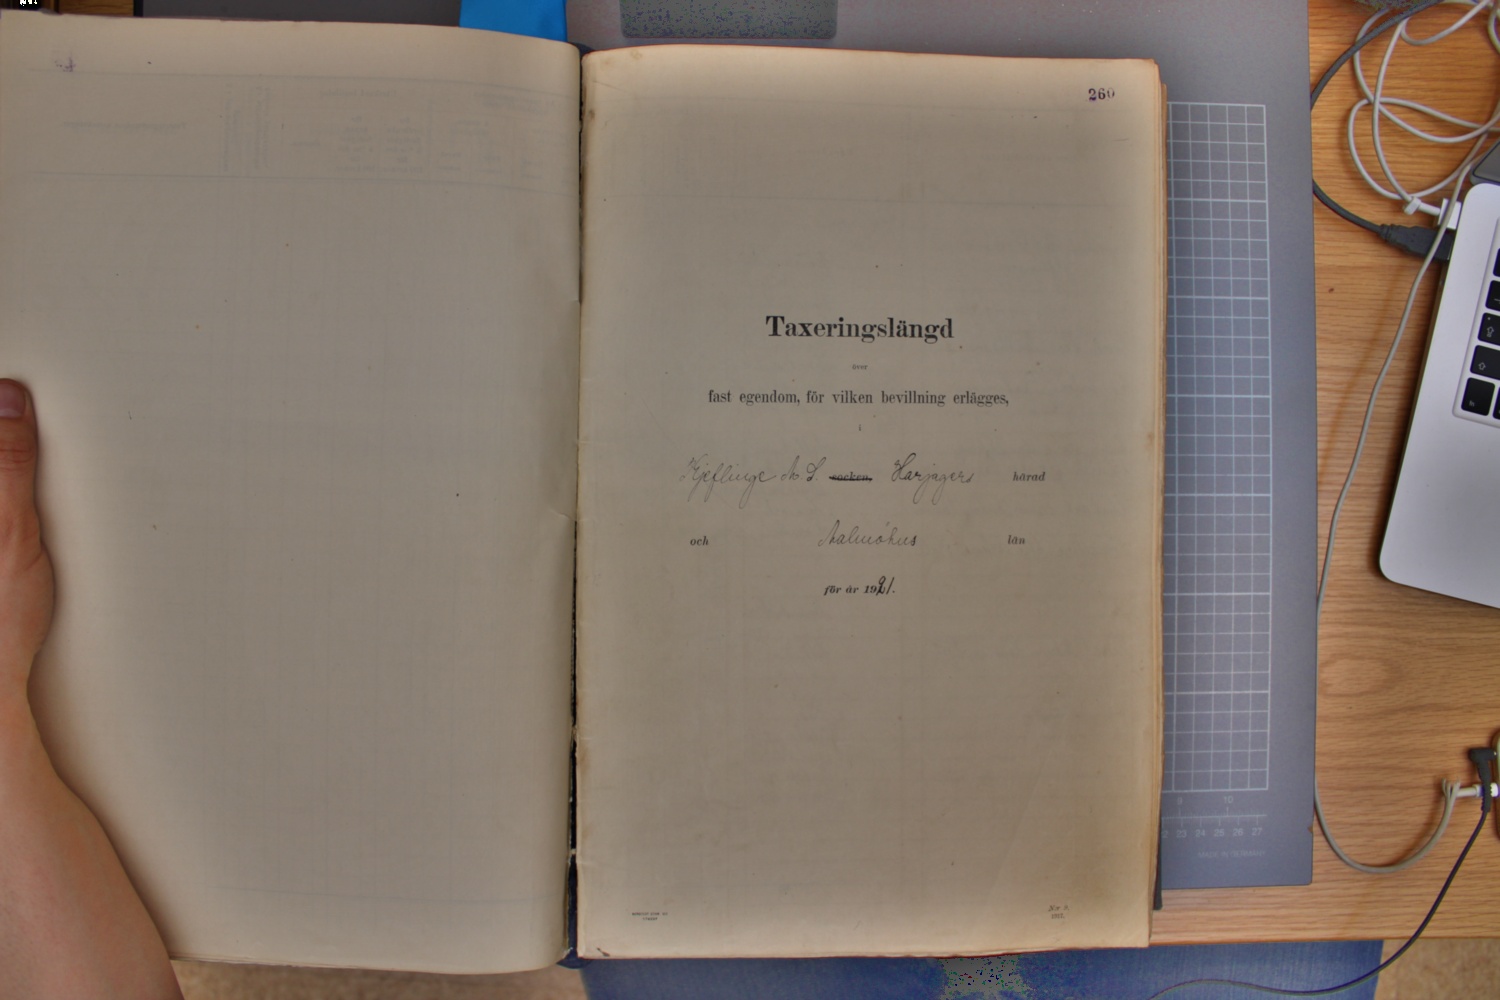 260
Taxeringslängd
över
fast egendom, för vilken bevillning erlägges,
i
Kjeflinge M. S. socken, Harjagers härad
och Malmöhus län
för år 1921.
9 10
23 24 25 26 27
MADE IN GERMANY